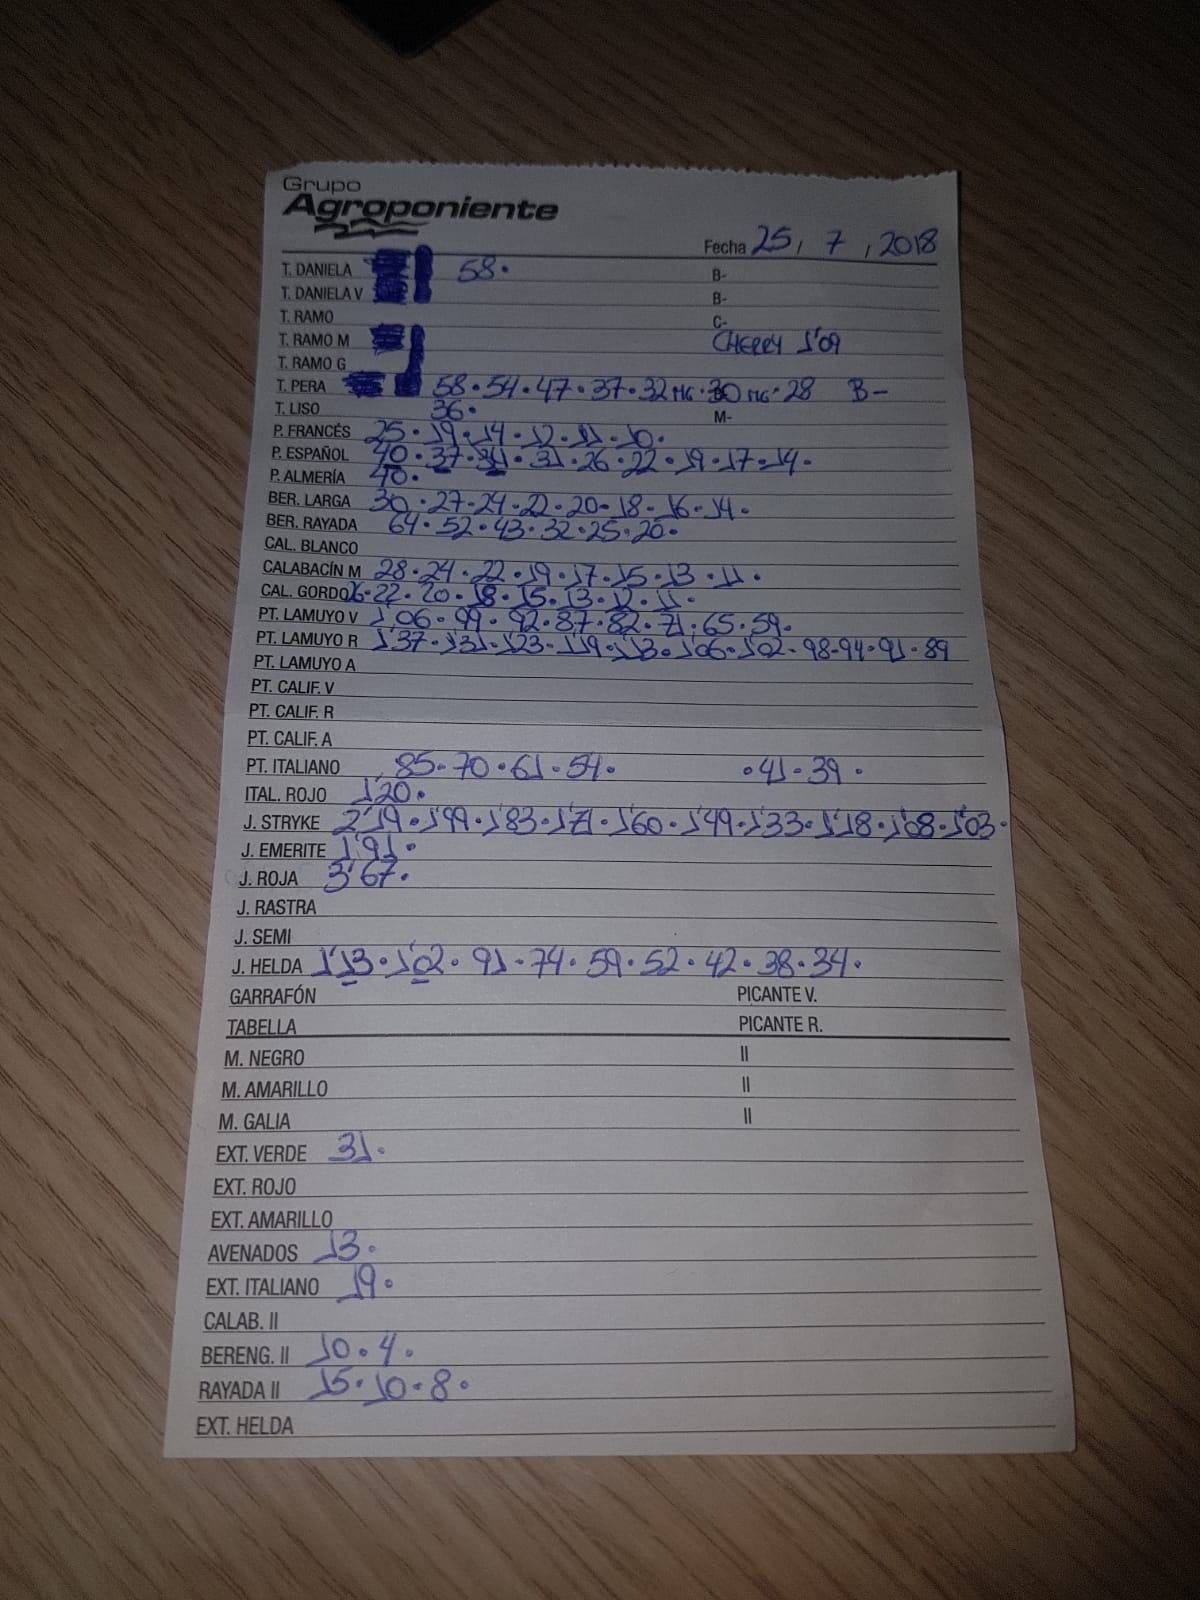 Grupo
Agroponiente
Fecha 25, 7, 2018
T. DANIELA 58. B-
T. DANIELA V B-
T. RAMO C-
T. RAMO M CHERRY 1'09
T. RAMO G
T. PERA 58.54.47.37.32 MG.30 MG.28 B-
T. LISO 36. M-
P. FRANCÉS 25.19.14.12.11.10.
P. ESPAÑOL 40.37.34.31.26.22.19.17.14.
P. ALMERÍA 40.
BER. LARGA 30.27.24.22.20.18.16.14.
BER. RAYADA 64.52.43.32.25.20.
CAL. BLANCO
CALABACÍN M 28.24.22.19.17.15.13.11.
CAL. GORDO 26.22.20.18.15.13.12.11.
PT. LAMUYO V 1'06.99.92.87.82.71.65.59.
PT. LAMUYO R 1'37.1'31.1'23.1'19.1'13.1'06.1'02.98.94.91.89
PT. LAMUYO A
PT. CALIF. V
PT. CALIF. R
PT. CALIF. A
PT. ITALIANO 85.70.61.54. .41.39.
ITAL. ROJO 1'20.
J. STRYKE 2'19.1'99.1'83.1'71.1'60.1'49.1'33.1'18.1'08.1'03.
J. EMERITE 1'91.
J. ROJA 3'67.
J. RASTRA
J. SEMI
J. HELDA 1'13.1'02.91.74.59.52.42.38.34.
GARRAFÓN PICANTE V.
TABELLA PICANTE R.
M. NEGRO II
M. AMARILLO II
M. GALIA II
EXT. VERDE 31.
EXT. ROJO
EXT. AMARILLO
AVENADOS 13.
EXT. ITALIANO 19.
CALAB. II
BERENG. II 10.4.
RAYADA II 15.10.8.
EXT. HELDA